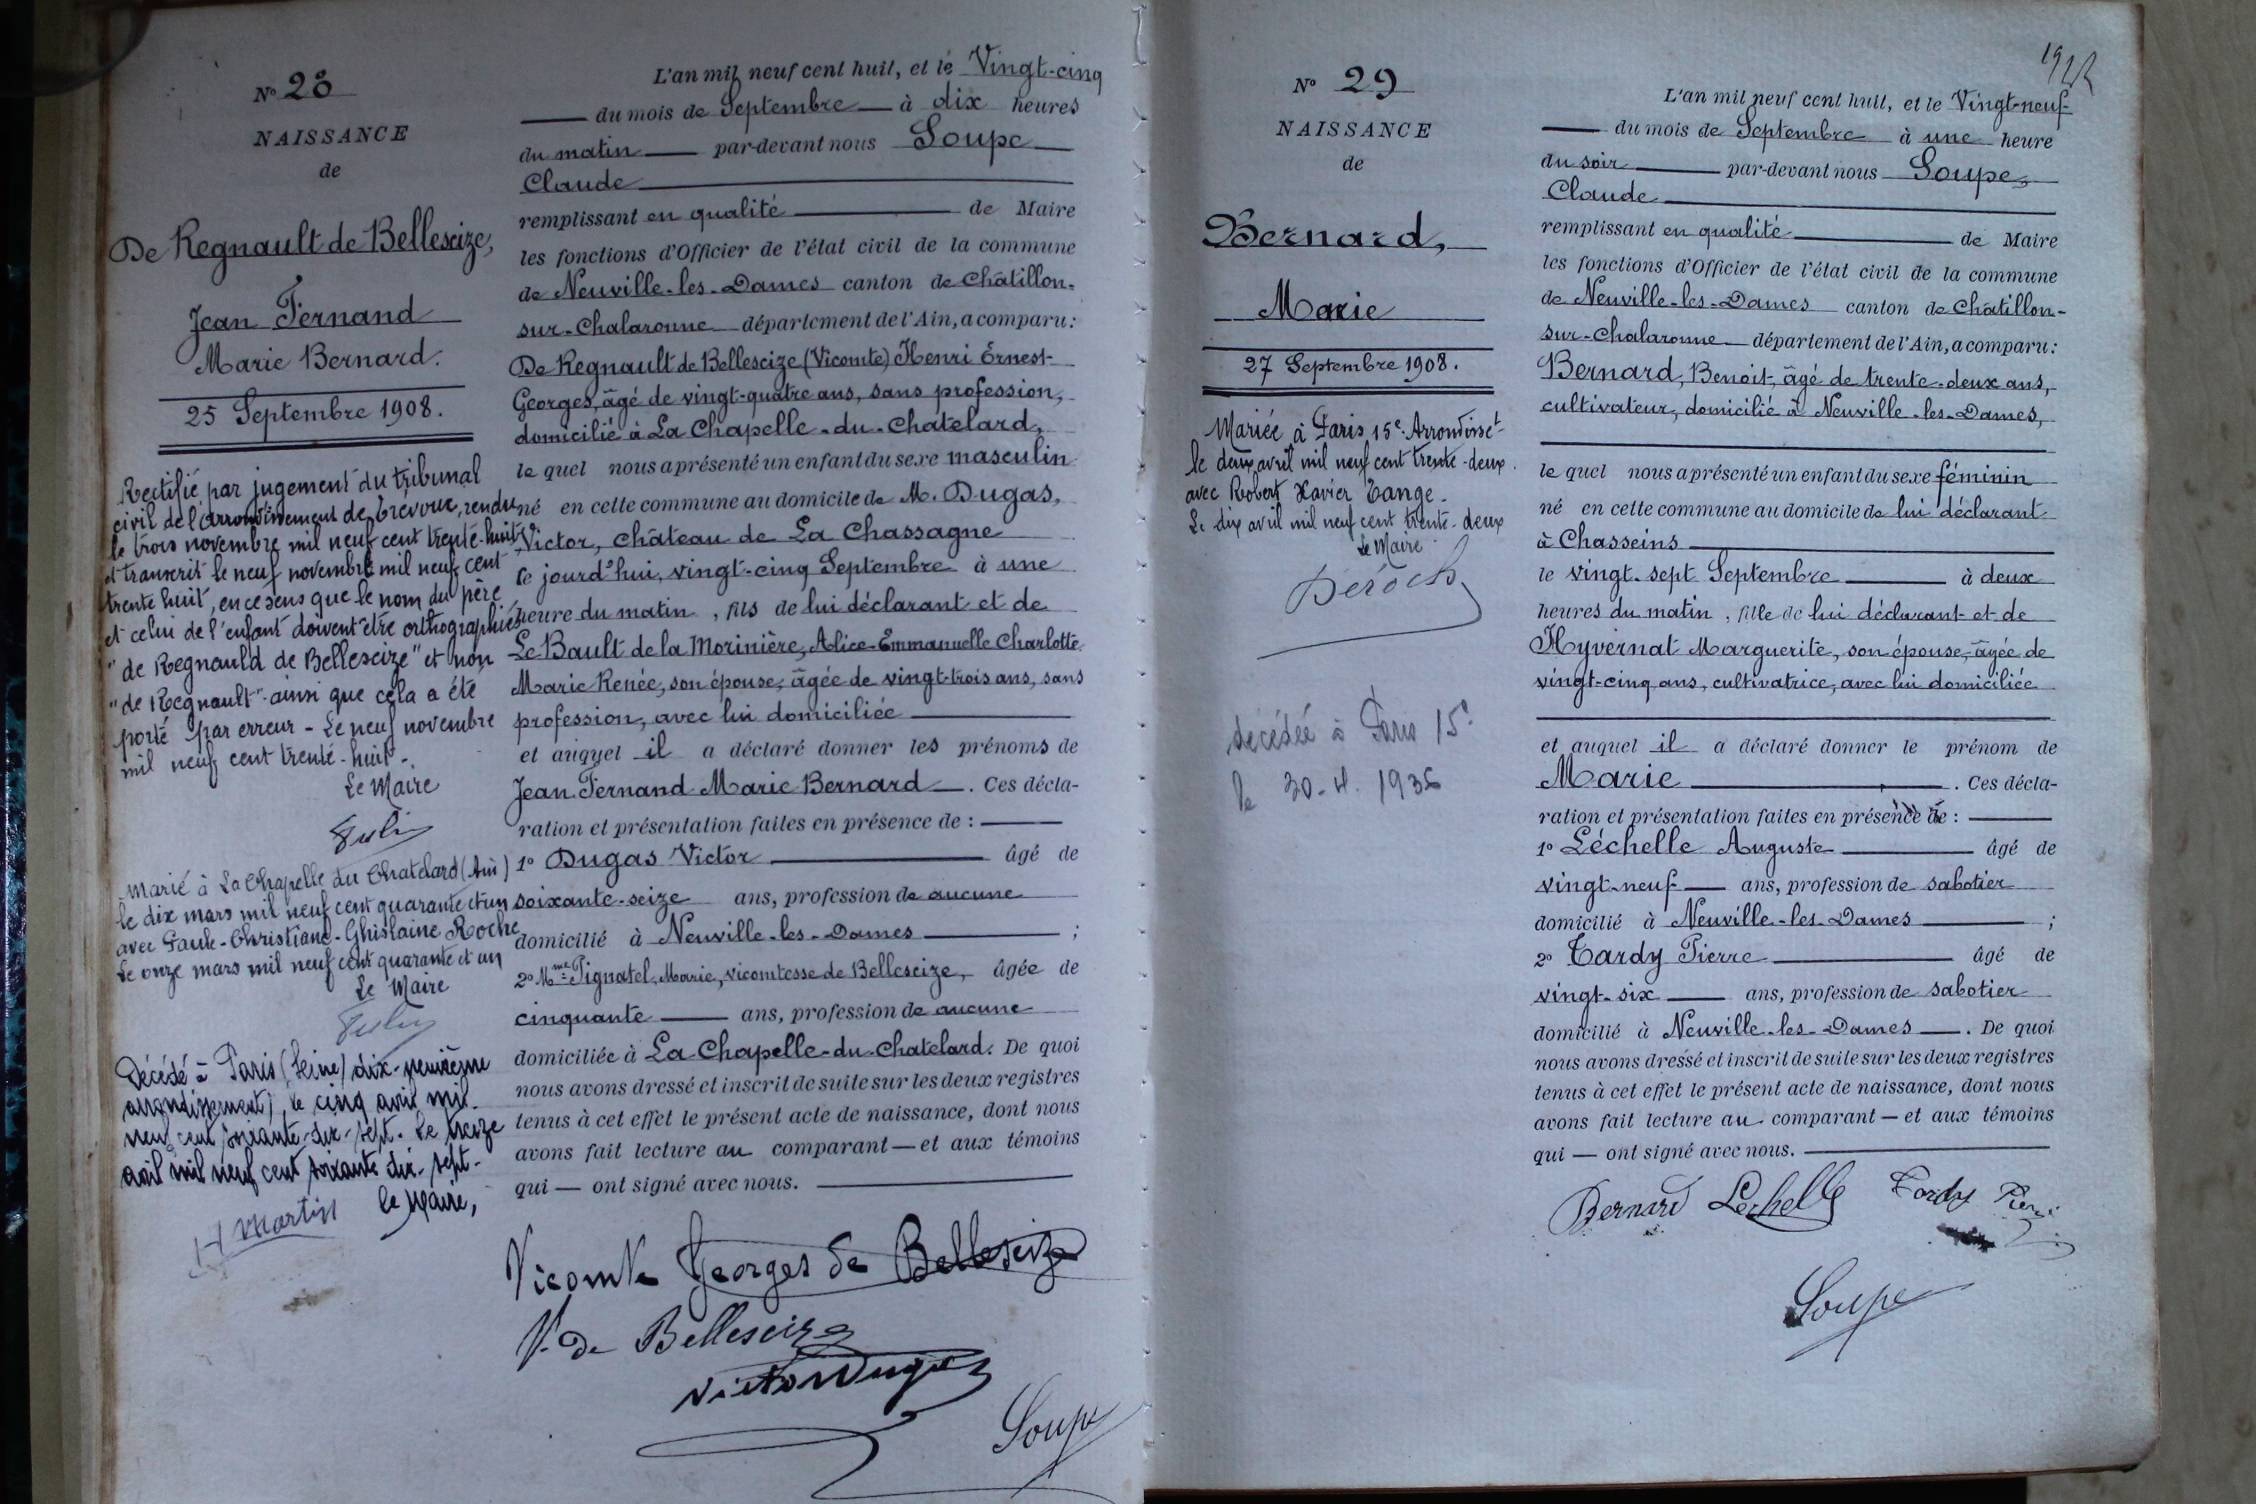 N° 28
NAISSANCE
de
De Regnault de Bellescize,
Jean Fernand
Marie Bernard.
25 Septembre 1908.
Rectifié par jugement du tribunal
civil de l'arrondissement de Trévoux, rendu
le trois novembre mil neuf cent trente-huit
et transcrit le neuf novembre mil neuf cent
trente huit, en ce sens que le nom du père
et celui de l'enfant doivent être orthographiés
"de Regnauld de Bellescize" et non
"de Regnault" ainsi que cela a été
porté par erreur - Le neuf novembre
mil neuf cent trente-huit-
Le Maire
Marié à La Chapelle du Chatelard (Ain)
le dix mars mil neuf cent quarante et un
avec Paule-Christiane-Ghislaine Roche
Le onze mars mil neuf cent quarante et un
Le Maire
Décédé à Paris (Seine) dix-neuvième
arrondissement), le cinq avril mil
neuf cent soixante-dix-sept. Le treize
avril mil neuf cent soixante dix-sept-
le Maire,
H Martin
L'an mil neuf cent huit, et le Vingt-cinq
du mois de Septembre à dix heures
du matin par-devant nous Soupe
Claude
remplissant en qualité de Maire
les fonctions d'Officier de l'état civil de la commune
de Neuville-les-Dames canton de Châtillon-
sur-Chalaronne département de l'Ain, a comparu :
De Regnault de Bellescize (Vicomte) Henri Ernest-
Georges, âgé de vingt-quatre ans, sans profession,
domicilié à La Chapelle-du-Chatelard,
le quel nous a présenté un enfant du sexe masculin
né en cette commune au domicile de M. Dugas,
Victor, château de La Chassagne
ce jourd'hui, vingt-cinq Septembre à une
heure du matin, fils de lui déclarant et de
Le Bault de la Morinière, Alice-Emmanuelle Charlotte
Marie Renée, son épouse, âgée de vingt-trois ans, sans
profession, avec lui domiciliée
et auquel il a déclaré donner les prénoms de
Jean Fernand Marie Bernard. Ces décla-
ration et présentation faites en présence de :
1° Dugas Victor âgé de
soixante-seize ans, profession de aucune
domicilié à Neuville-les-Dames ;
2° Mme Pignatel, Marie, vicomtesse de Bellescize, âgée de
cinquante ans, profession de aucune
domiciliée à La Chapelle-du-Chatelard. De quoi
nous avons dressé et inscrit de suite sur les deux registres
tenus à cet effet le présent acte de naissance, dont nous
avons fait lecture au comparant — et aux témoins
qui — ont signé avec nous.
Vicomte Georges de Bellescize
V. de Bellescize
Victor Dugas
Soupe
1928
N° 29
NAISSANCE
de
Bernard,
Marie
27 Septembre 1908.
Mariée à Paris 15e Arrondisst
le deux avril mil neuf cent trente-deux
avec Robert Xavier Tange.
Le dix avril mil neuf cent trente-deux
Le Maire
décédée à Paris 15e
L'an mil neuf cent huit, et le Vingt-neuf
du mois de Septembre à une heure
du soir par-devant nous Soupe,
Claude
remplissant en qualité de Maire
les fonctions d'Officier de l'état civil de la commune
de Neuville-les-Dames canton de Châtillon-
sur-Chalaronne département de l'Ain, a comparu :
Bernard, Benoit, âgé de trente-deux ans,
cultivateur, domicilié à Neuville-les-Dames,
le quel nous a présenté un enfant du sexe féminin
né en cette commune au domicile de lui déclarant
à Chasseins
le vingt-sept Septembre à deux
heures du matin, fille de lui déclarant et de
Hyvernat Marguerite, son épouse, âgée de
vingt-cinq ans, cultivatrice, avec lui domiciliée
et auquel il a déclaré donner le prénom de
Marie. Ces décla-
ration et présentation faites en présence de :
1° Léchelle Auguste âgé de
vingt-neuf ans, profession de sabotier
domicilié à Neuville-les-Dames ;
2° Tardy Pierre âgé de
vingt-six ans, profession de sabotier
domicilié à Neuville-les-Dames. De quoi
nous avons dressé et inscrit de suite sur les deux registres
tenus à cet effet le présent acte de naissance, dont nous
avons fait lecture au comparant — et aux témoins
qui — ont signé avec nous.
Bernard Lechelle Tardy Pierre
Soupe